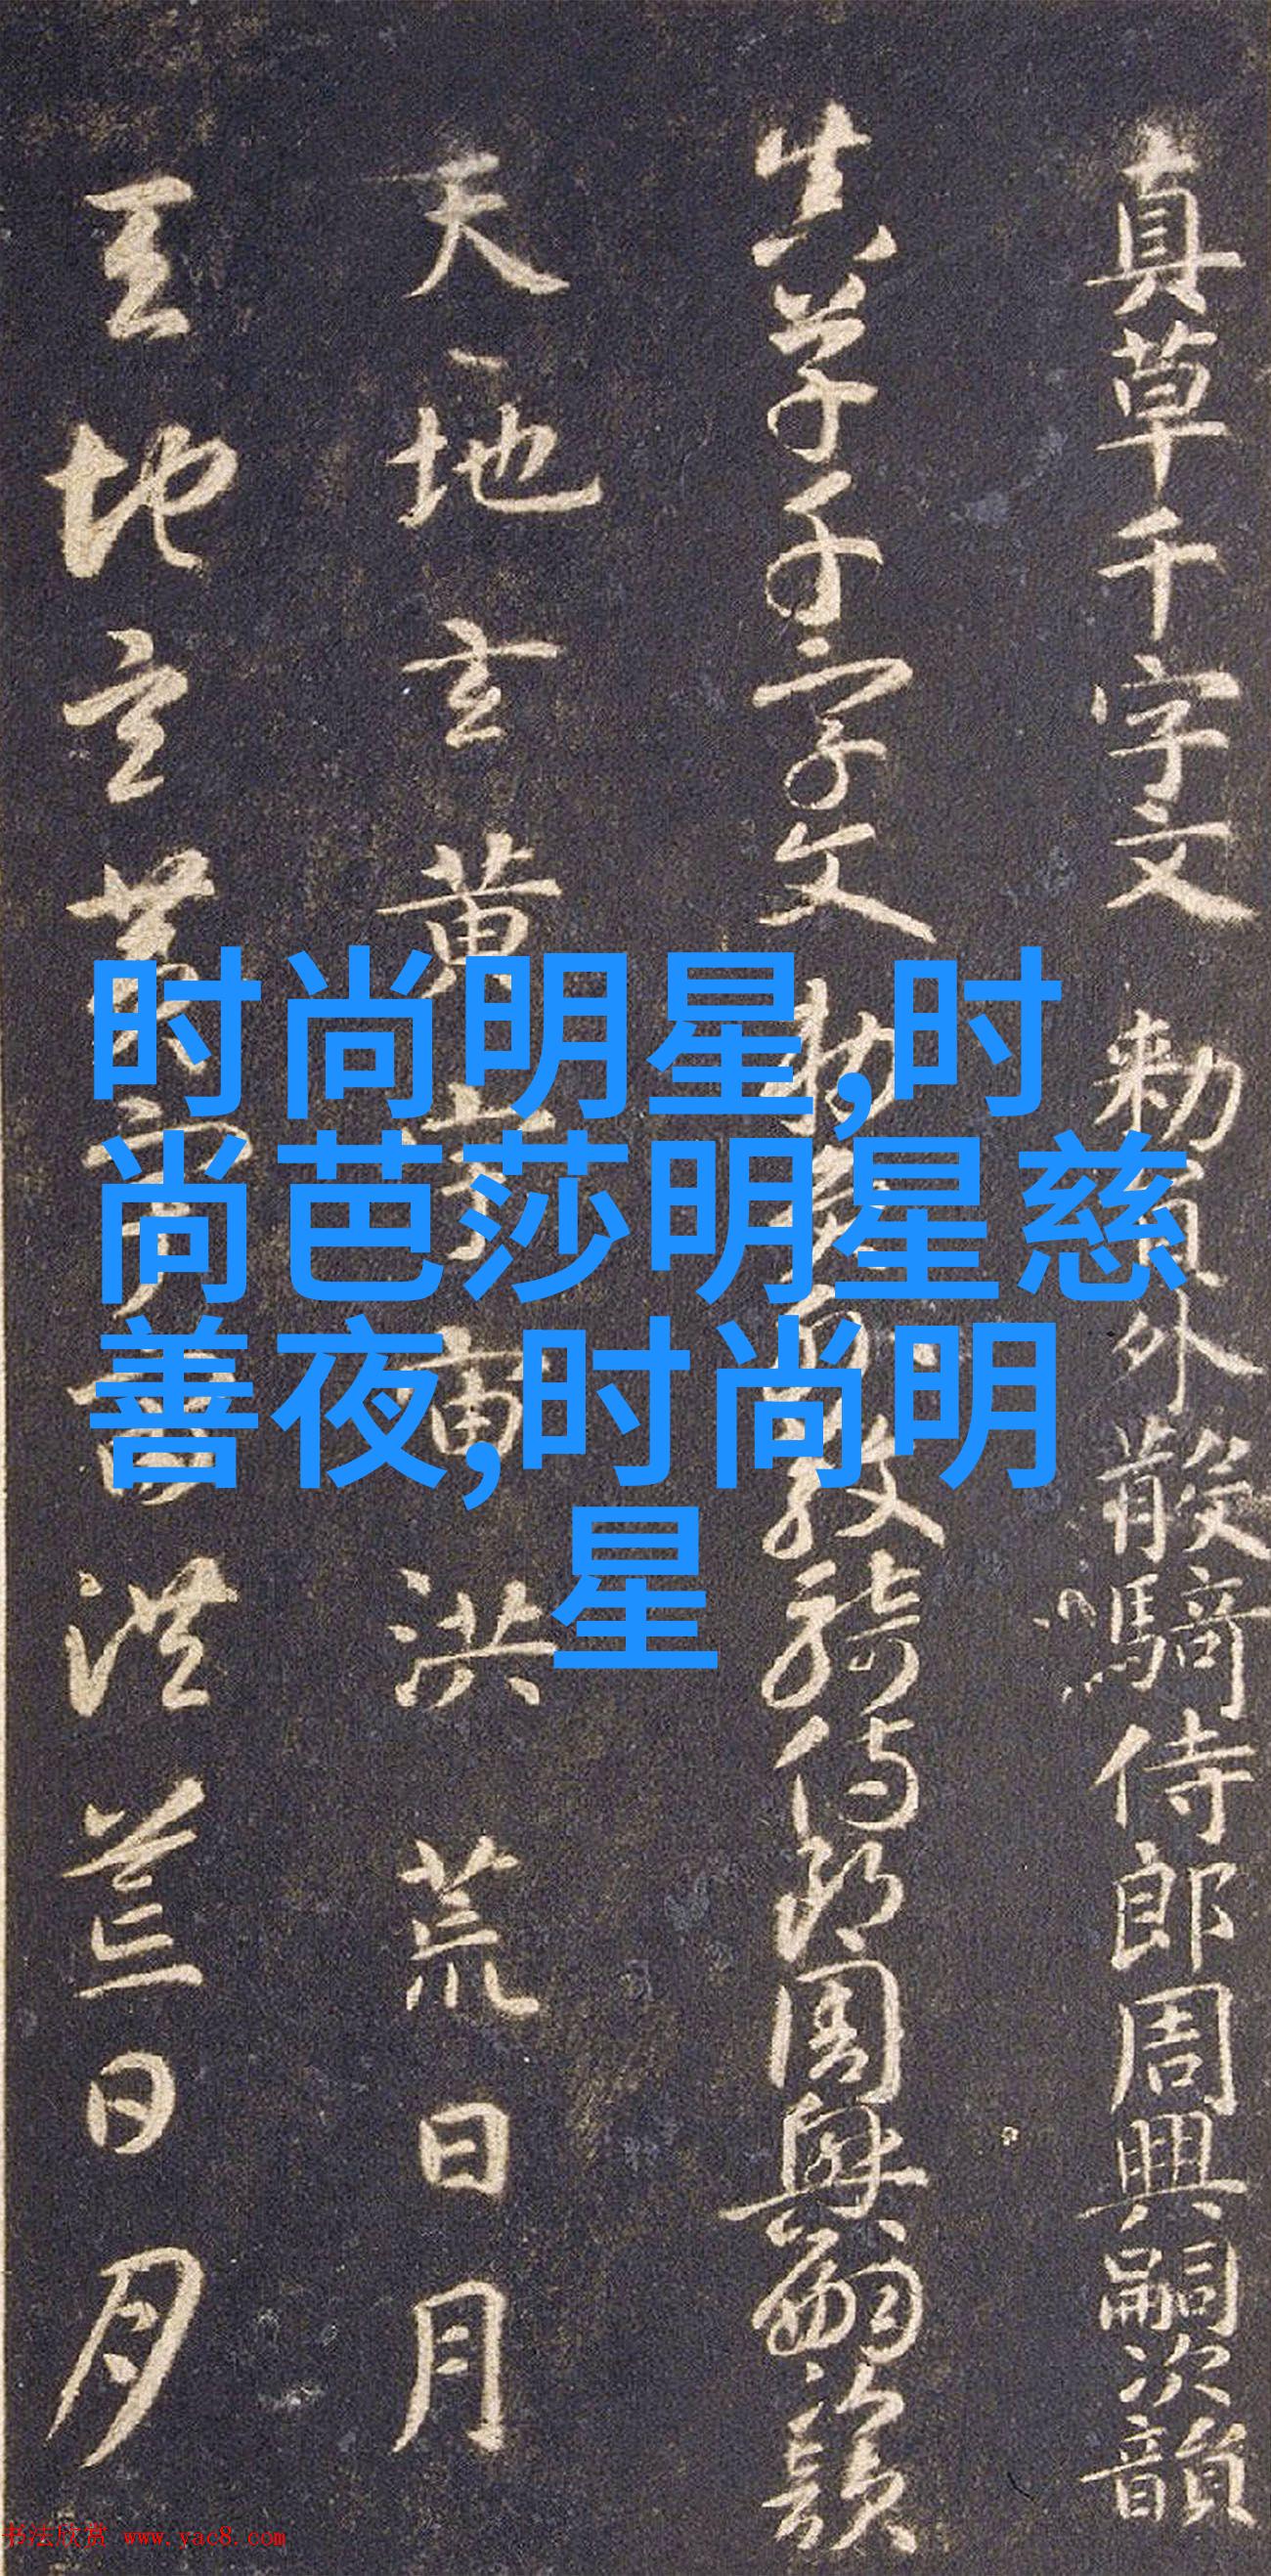 真草千字文 勅員外散騎侍郎周興嗣次韻
真草千字文 勅員外散騎侍郎周興嗣次韻
天地玄黄宇宙洪荒日月
天地玄黄宇宙洪荒日月
时尚明星,时
尚芭莎明星慈
善夜,时尚明
星
书法欣赏 www.yac8.com